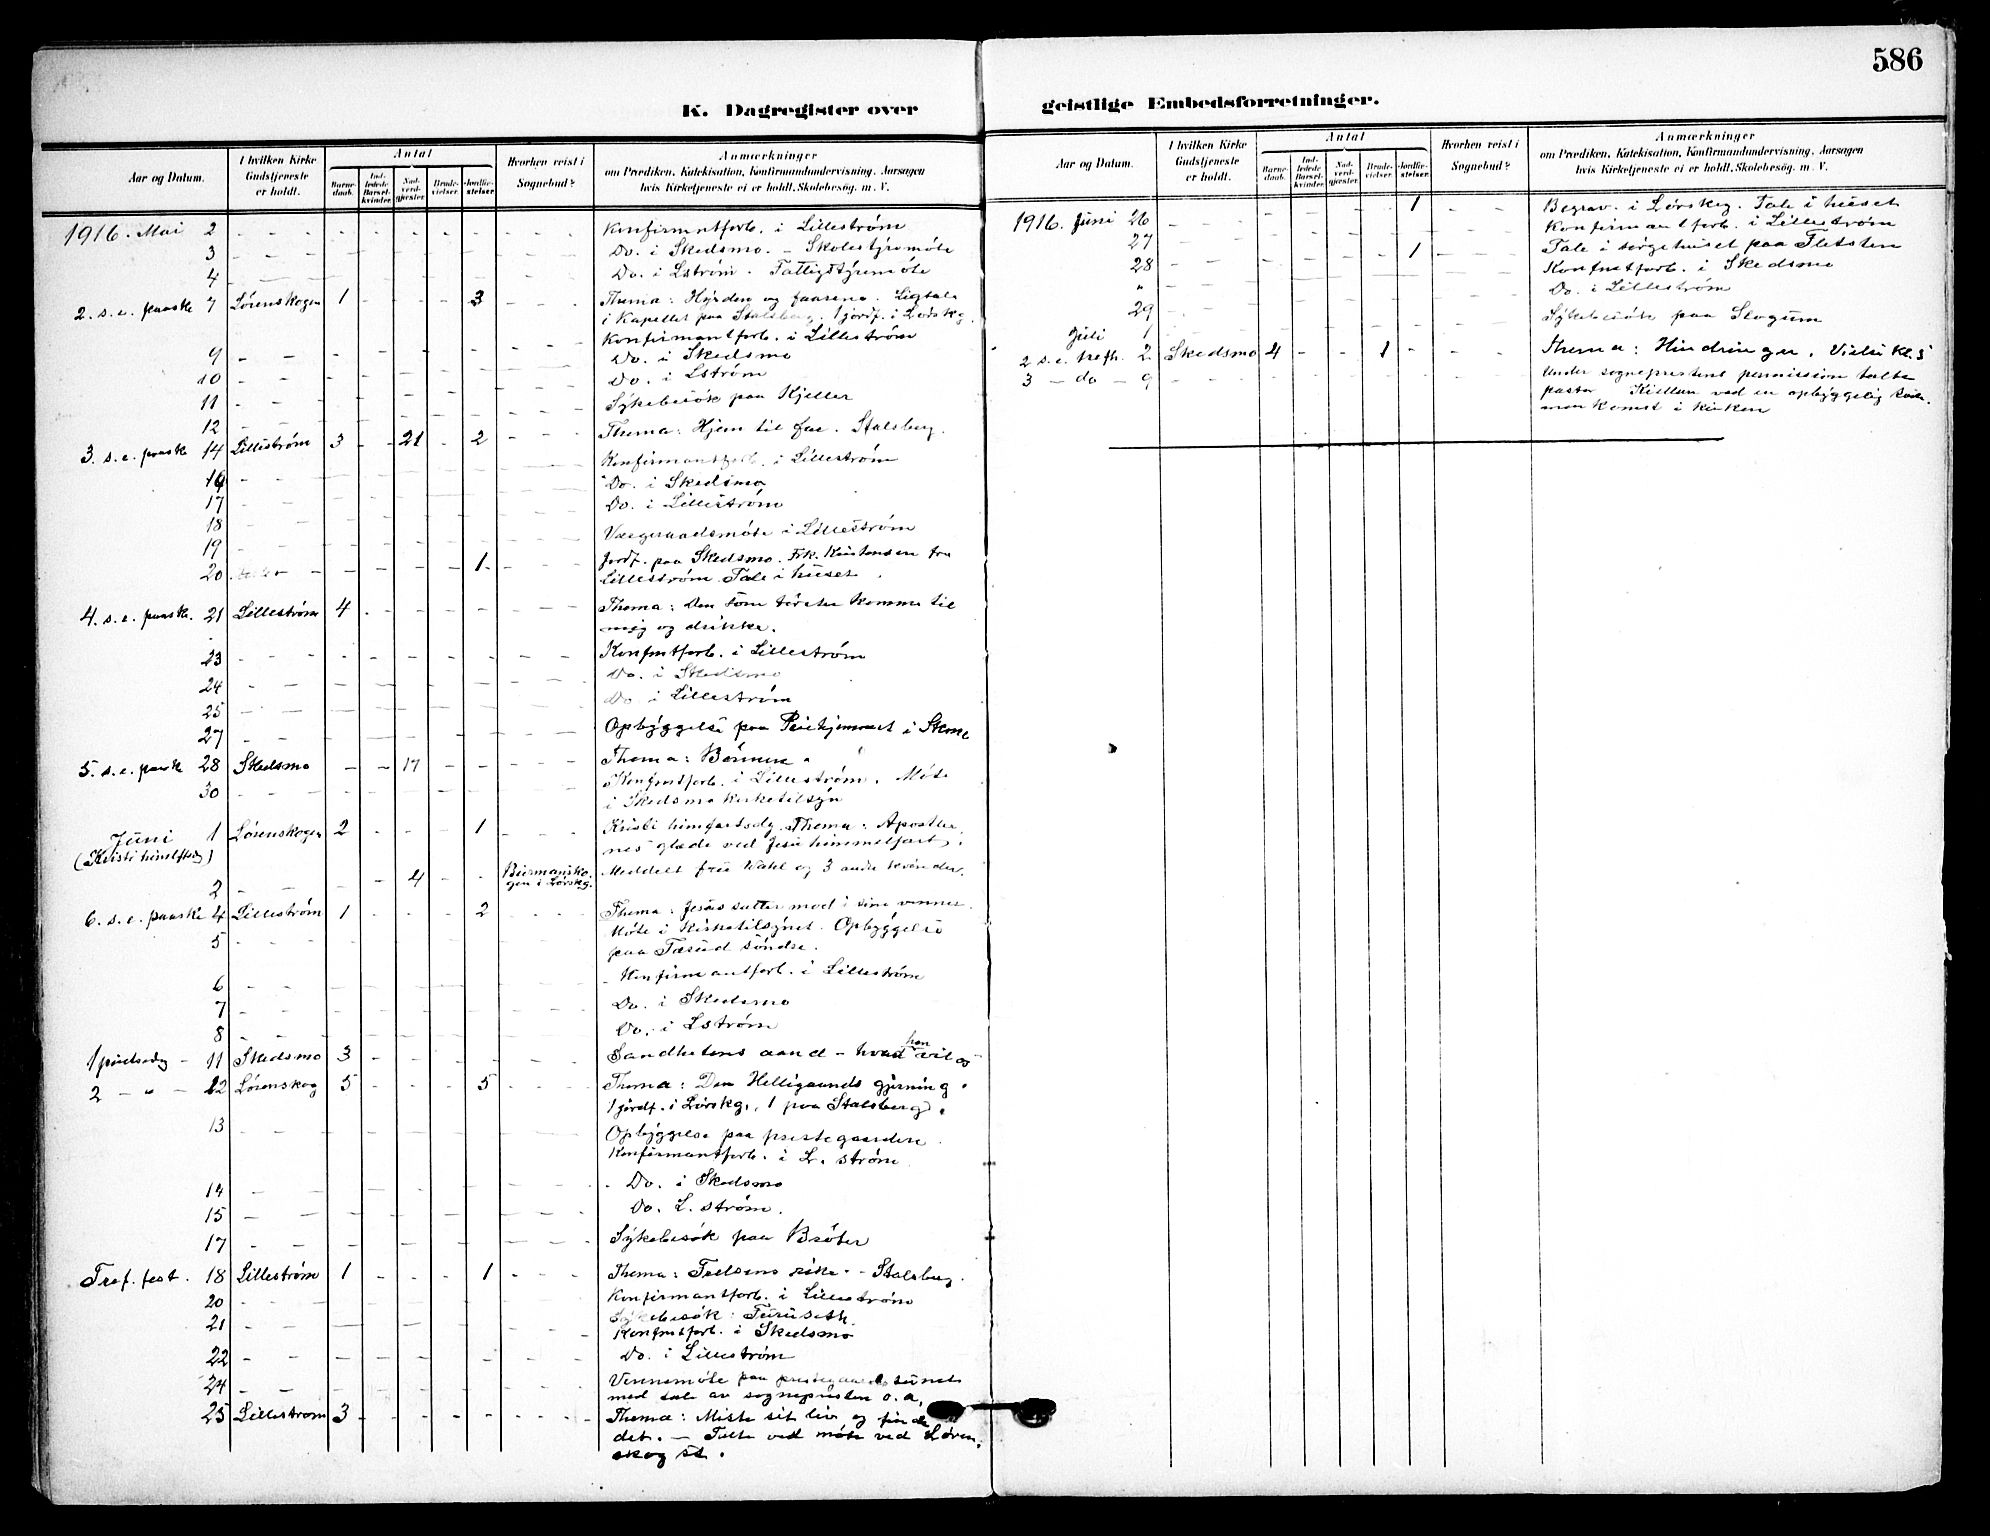 586
K. Dagregister over
geistlige Embedsforretninger.
Aar og Datum.
I hvilken Kirke Gudstjeneste er holdt.
Antal
Barnedaab.
Indledede Barselkvinder.
Nadverdgjester.
Brudevielser.
Jordfæstelser.
Hvorhen reist i Sognebud?
Anmærkninger
om Prædiken, Katekisation, Konfirmandundervisning, Aarsagen
hvis Kirketjeneste ei er holdt, Skolebesøg. m. V.
1916. Mai 2 Konfirmantforb. i Lilleström
3 Do. i Skedsmo. – Skolestyremöte
4 Do. i Lström. Fattigstyremöte
2. s. e. paaske 7 Lörenskogen 1 3 Thema: Hyrden og faarene. Ligtale
i Kapellet paa Stalsberg. 1 jordf. i Lørskg.
9 Konfirmantforb. i Lilleström
10 Do. i Skedsmo
11 Do. i Lström
12 Sykebesök paa Kjeller
3. s. e. paaske 14 Lilleström 3 21 2 Thema: Hjem til far. Stalsberg.
16 Konfirmantforb. i Lilleström
17 Do. i Skedsmo
18 Do. i Lilleström
19 Værgeraadsmöte i Lilleström
20 1 Jordf. paa Skedsmo. Frk. Kristensen fra
Lilleström Tale i huset.
4. s. e. paaske. 21 Lilleström 4 Thema: Den som törster komme til
mig og drikke.
23 Konfmtforb. i Lilleström
24 Do. i Skedsmo
25 Do i Lilleström
27 Opbyggelse paa i
5. s. e. paaske 28 Skedsmo 17 Thema: Bönnen.
30 Konfmtforb. i Lilleström. Möte
i Skedsmo kirketilsyn
Juni 1 Lörenskogen 2 1 Kristi himfartsdg. Thema: Apostle
(Kristi himlftsdg) nes glæde ved Jesu himmelfart.
2 4 Bjermansko
gen i Lörskg. Meddelt fru Wahl og 3 andre kvinder.
6. s. e. paaske 4 Lilleström 1 2 Thema: Jesus sætter mod i sine venner.
5 Möte i Kirketilsynet. Opbyggelse
paa Tærud söndre.
6 Konfirmantforb. i Lilleström
7 Do. i Skedsmo
8 Do. i Lström
1 pintsedg – 11 Skedsmo 3 Sandhetens aand – hvad han vil os
2 – " – 12 Lörenskog 5 5 Thema: Den Helligaands gjerning.
1 jördf. i Lörskg., 1 paa Stalsberg.
13 Opbyggelse paa prestegaarden.
Konfirmantforb. i L. ström
14 Do. i Skedsmo
15 Do. L. ström.
17 Sykebesök paa Bröter
Tref. fest. 18 Lilleström 1 1 Thema: Frelsens rike. – Stalsberg.
20 Konfirmantforb. i Lilleström
21 Sykebesök: Furuseth.
Konfmtforb. i Skedsmo
22 Do. i Lilleström
24 Vennemöte paa prestegaards
med tale av sognepresten o. a.
25 Lilleström 3 Thema: Miste sit liv og finde
det. – Talte ved möte ved Lören-
skog st.
Aar og Datum.
I hvilken Kirke Gudstjeneste er holdt.
Antal
Barnedaab.
Indledede Barselkvinder.
Nadverdgjester.
Brudevielser.
Jordfæstelser.
Hvorhen reist i Sognebud?
Anmærkninger
om Prædiken, Katekisation, Konfirmandundervisning, Aarsagen
hvis Kirketjeneste ei er holdt, Skolebesøg. m. V.
1916. Juni 26 1 Begrav. i Lörskg. Tale i huset
27 Konfirmantforb. i Lilleström
28 1 Tale i sørgehuset paa Fletsten
" Konfmtforb. i Skedsmo
29 Do. i Lilleström
Juli 1 Sykebesök paa Slogum
2 s. e. trefh. 2 Skedsmo 4 1 Thema: Hindringer. Vielse kl. 5
3 – do – 9 Under sogneprestens permission talte
pastor ved en opbyggelig sam-
menkomst i kirken